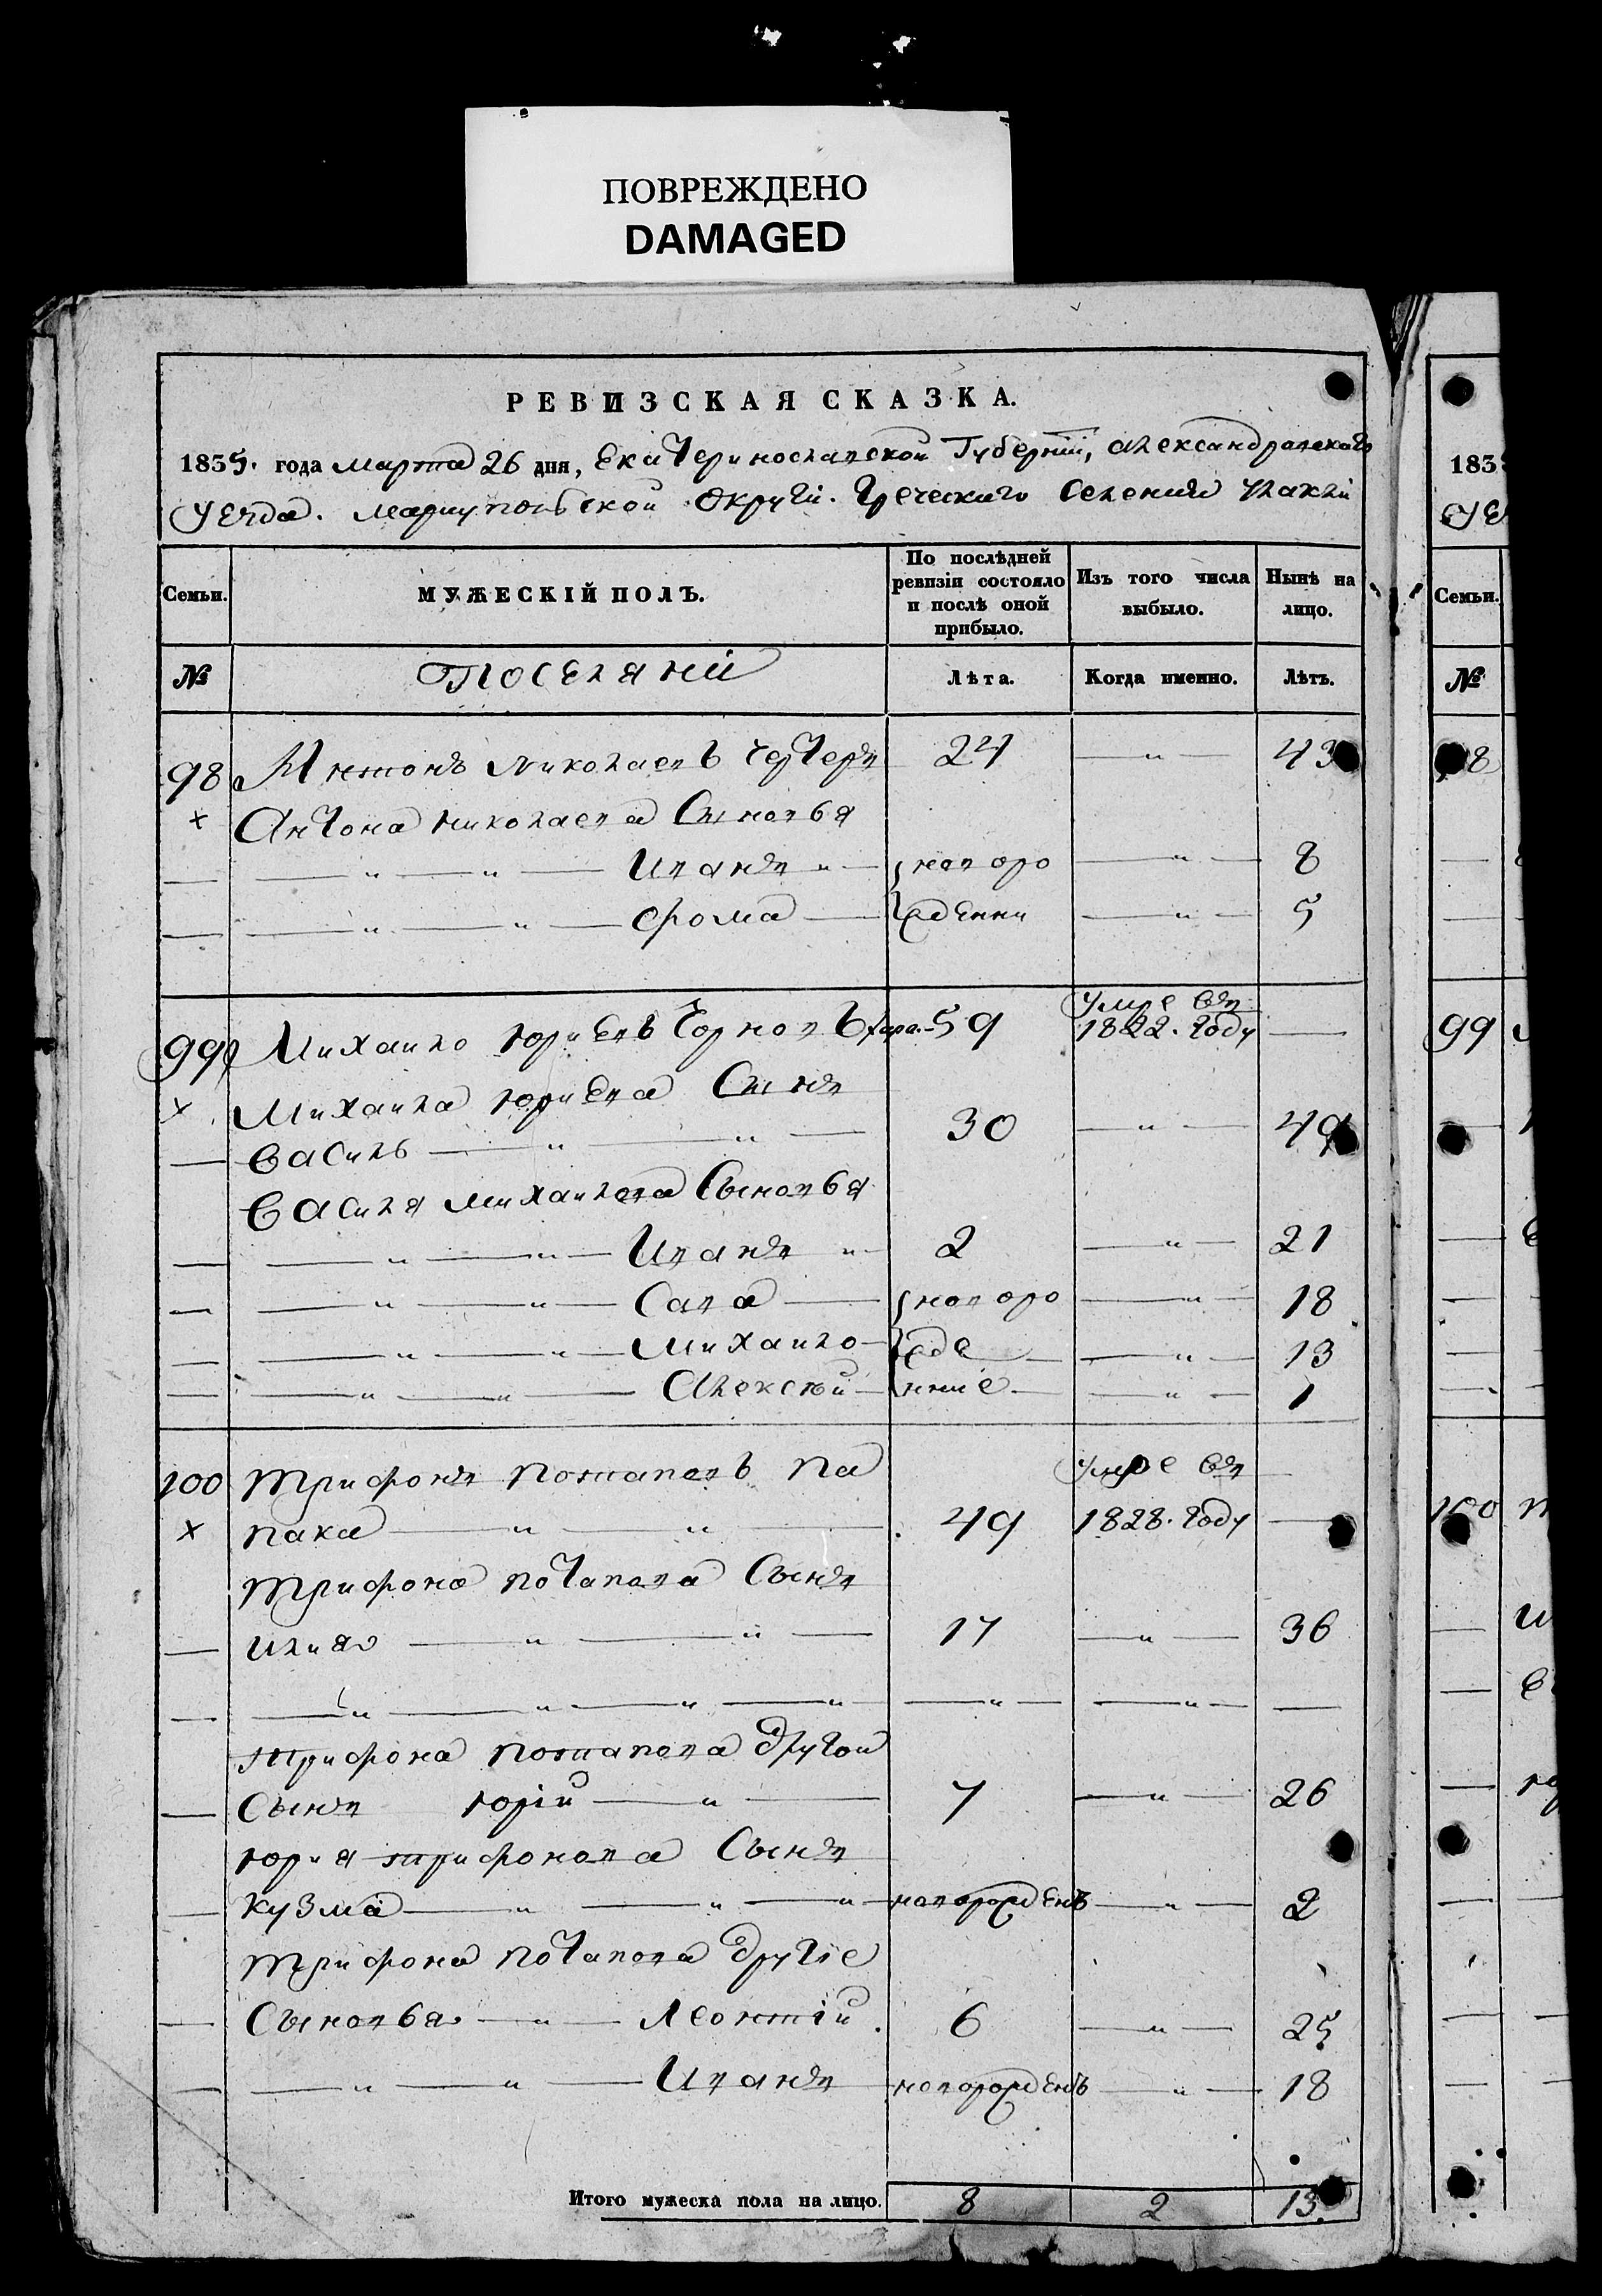 ПОВРЕЖДЕНО
DAMAGED
РЕВИЗСКАЯ СКАЗКА.
1835. года марта 26 дня, Екатеринославской Губерніи, александровскаго
Уезда. мариупольской Округи. Греческаго Селения
Семьи.
МУЖЕСКІЙ ПОЛЪ.
По послѣдней ревизіи состояло и послѣ оной прибыло.
Изъ того числа выбыло.
Нынѣ на лицо.
№
Поселяни
Лѣта.
Когда именно.
Лѣтъ.
98 Антонъ Николаевъ 24 — " — 43
× Антона николаева Сыновья
— — " — " — Иванъ " — новоро — " — 8
— — " — " — фома — ждении — " — 5
99 Михаило юриевъ 59 умре въ 1822. году —
× Михаила юриева Сынъ
— василь — " — " — 30 — " — 49
василя михаилова Сыновья
— — " — " — Иванъ " — 2 — " — 21
— — " — " — Сава — новоро — " — 18
— — " — " — михаило — жде — " — 13
— — " — " — Алексей — нние — " — 1
100 трифонъ потаповъ па умре въ —
× пака — " — " — 49 1828. году —
трифона потапова Сынъ
— илия — " — " — 17 — " — 36
— — " — " — " — " — " — " — —
трифона потапова другой
— Сынъ юрій — " — 7 — " — 26
юрия трифонова Сынъ
— кузма — " — " — " — новорожденъ — " — 2
трифона потапова другіе
— Сыновья — " — леонтій. 6 — " — 25
— — " — " — Иванъ новорожденъ — " — 18
Итого мужеска пола на лицо. 8 2 13.
183
Семьи.
№
98
99
100